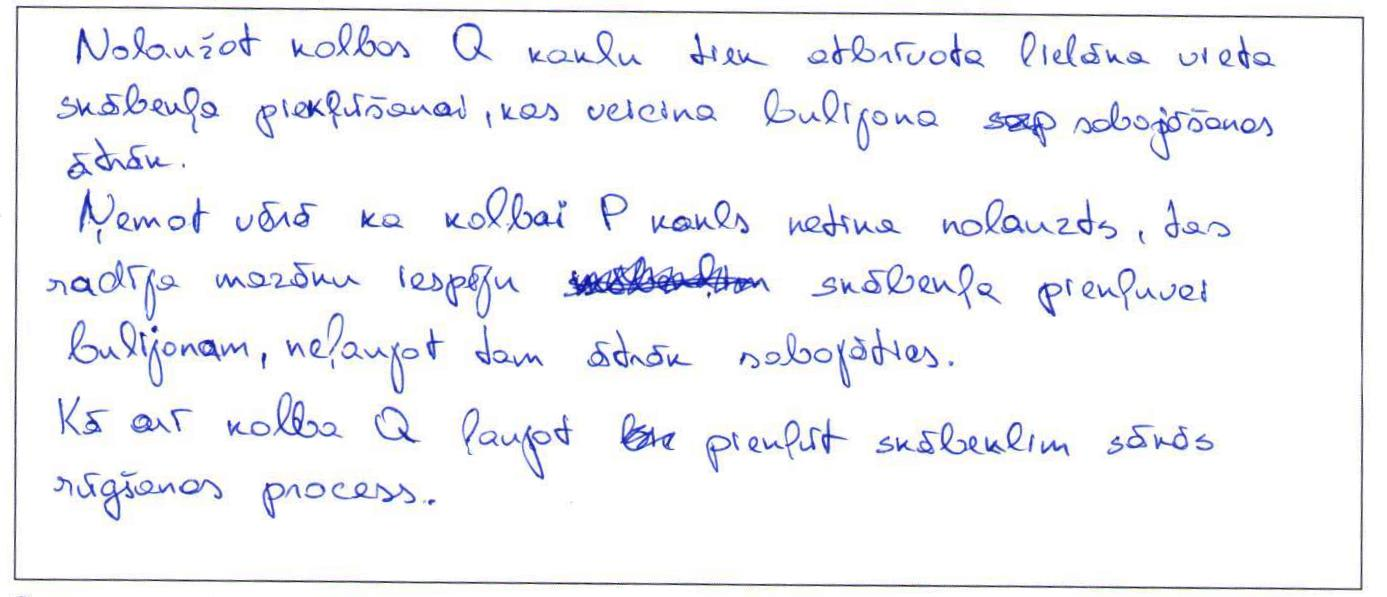 Nolaužot kolbas Q kaklu tiek atbrīvota lielāka vieta
skābekļa piekļūšanai, kas veicina buljona sabojāšanos
ātrāk.
Ņemot vērā ka kolbai P kakls netika nolauzts, tas
radīja mazāku iespēju skābekļa piekļuvei
buljonam, neļaujot tam ātrāk sabojāties.
Kā arī kolba Q ļaujot piekļūt skābeklim sākās
rūgšanas process.